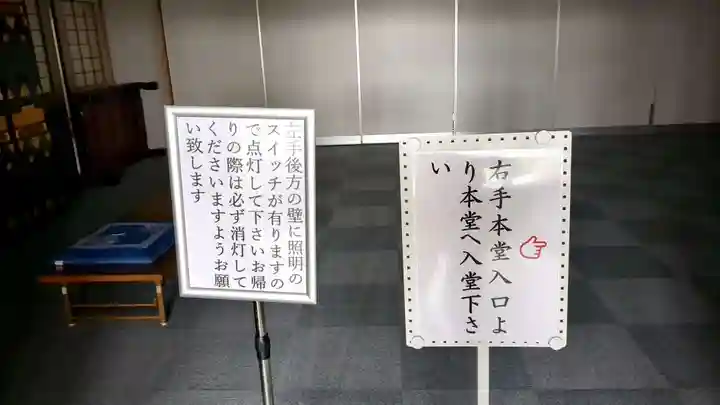 左手後方の壁に照明の
スイッチが有りますの
で点灯して下さいお帰
りの際は必ず消灯して
くださいますようお願
い致します
右手本堂入口よ
り本堂へ入堂下さ
い